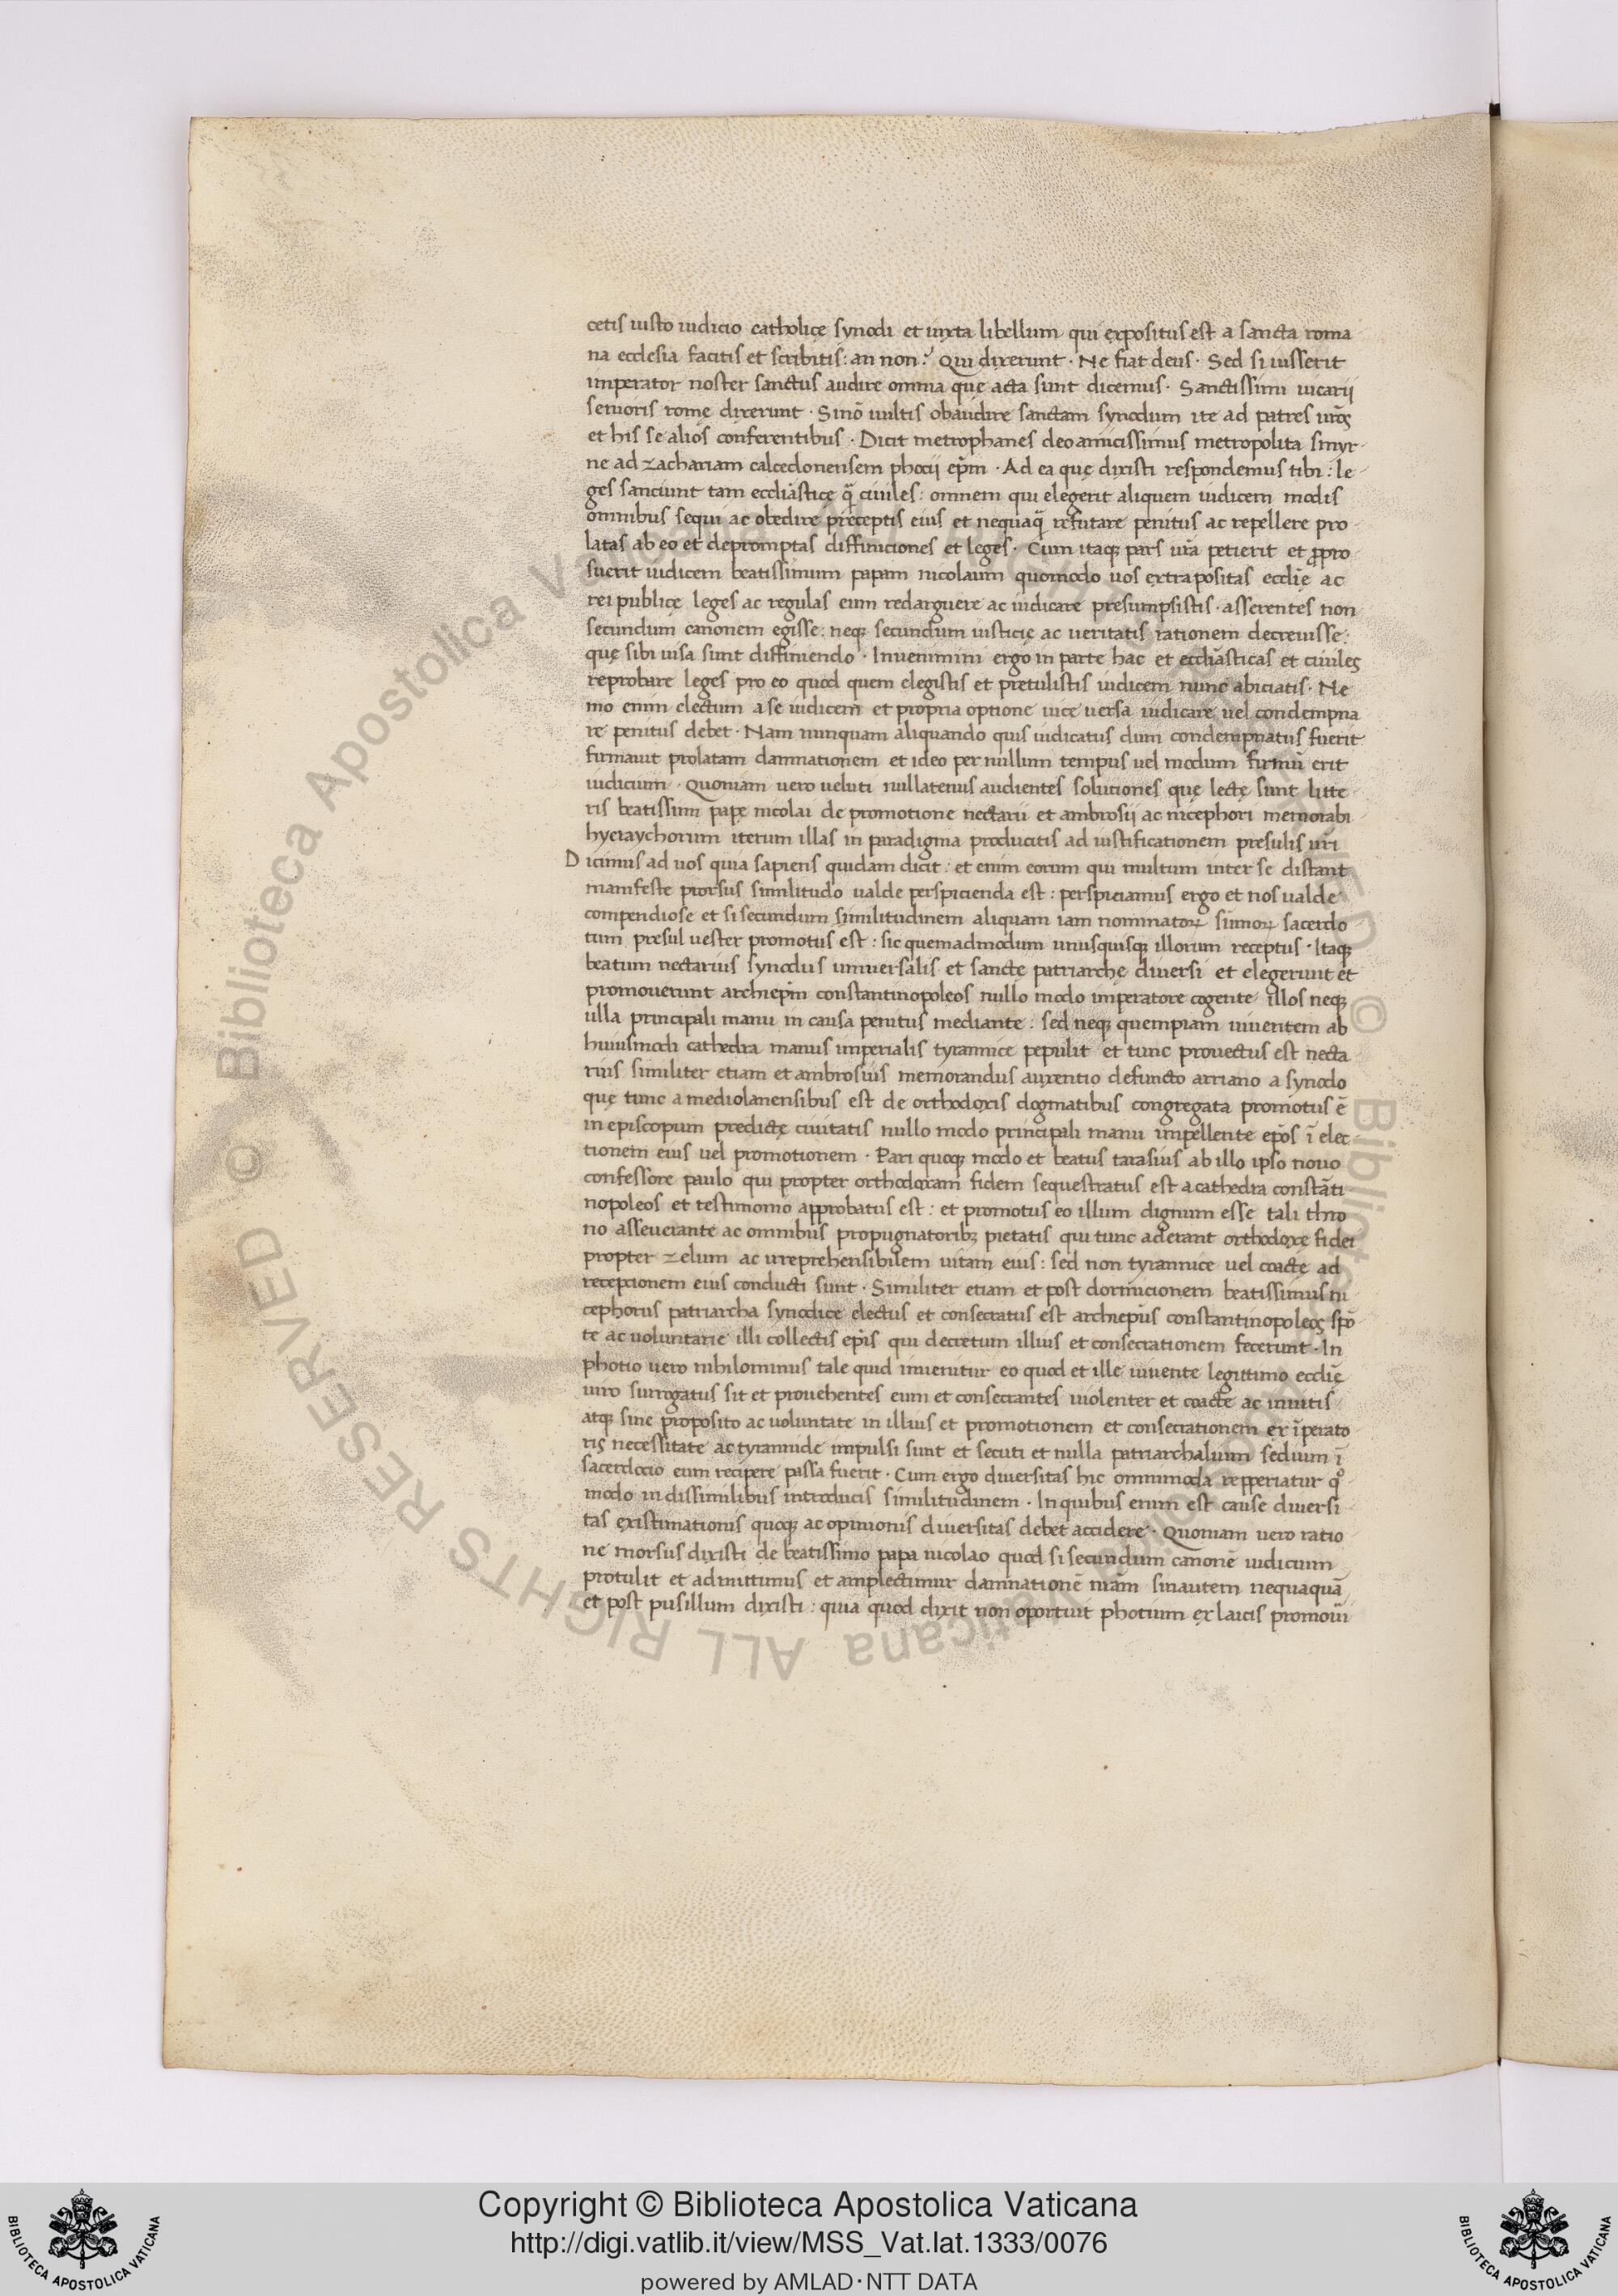 cetis iusto iudicio catholicę synodi et iuxta libellum qui expositus est a sancta roma
na ecclesia facitis et scribitis: an non? Qui dixerunt · Ne fiat deus · Sed si iusserit
imperator noster sanctus audire omnia quę acta sunt dicemus · Sanctissimi uicarij
senioris romę dixerunt · Sinō uultis obaudire sanctam synodum ite ad patres ur̄os
et his se alios conferentibus · Dicit metrophanes deo amicissimus metropolita smyr
ne ad zachariam calcedonensem phocij ep̄m · Ad ea quę dixisti respondemus tibi: le
ges sanciunt tam eccl̄iasticę q̄ ciuiles: omnem qui elegerit aliquem iudicem modis
omnibus sequi ac obedire pręceptis eius et nequaq̄ refutare penitus ac repellere pro
latas ab eo et depromptas diffiniciones et leges · Cum itaq; pars ur̄a petierit et propo
suerit iudicem beatissimum papam nicolaum quomodo uos extra positas eccl̄ię ac
rei publicę leges ac regulas eum redarguere ac iudicare presumpsistis · asserentes non
secundum canonem egisse: neq; secundum iusticię ac ueritatis rationem decreuisse:
quę sibi uisa sunt diffiniendo · Inuenimini ergo in parte hac et eccl̄iasticas et ciuiles
reprobare leges pro eo quod quem elegistis et pretulistis iudicem nunc abiciatis · Ne
mo enim electum a se iudicem et propria optione uice uersa iudicare uel condempna
re penitus debet · Nam nunquam aliquando quis iudicatus dum condempnatus fuerit
firmauit prolatam damnationem et ideo per nullum tempus uel modum firmū erit
iudicium · Quoniam uero ueluti nullatenus audientes solutiones quę lectę sunt litte
ris beatissimi papę nicolai de promotione nectarii et ambrosij ac nicephori memorabi
hyeraychorum iterum illas in paradigma producitis ad iustificationem presulis ur̄i
Dicimus ad uos quia sapiens quidam dicit: et enim eorum qui multum inter se distant
manifeste prorsus similitudo ualde perspicienda est: perspiciamus ergo et nos ualde
compendiose et si secundum similitudinem aliquam iam nominatoꝝ summoꝝ sacerdo
tum presul uester promotus est: sic quemadmodum unusquisq; illorum receptus · Itaq;
beatum nectarius synodus uniuersalis et sancte patriarchę diuersi et elegerunt et
promouerunt archiep̄m constantinopoleos nullo modo imperatore cogente illos neq;
ulla principali manu in causa penitus mediante: sed neq; quempiam uiuentem ab
huiusmodi cathedra manus imperialis tyrannice pepulit et tunc prouectus est necta
rius similiter etiam et ambrosius memorandus auxentio defuncto arriano a synodo
quę tunc a mediolanensibus est de orthodoxis dogmatibus congregata promotus ē
in episcopum predictę ciuitatis nullo modo principali manu impellente ep̄os ī elec
tionem eius uel promotionem · Pari quoq; modo et beatus tarasius ab illo ipso nouo
confessore paulo qui propter orthodoxam fidem sequestratus est a cathedra constāti
nopoleos et testimonio approbatus est: et promotus eo illum dignum esse tali thro
no asseuerante ac omnibus propugnatorib; pietatis qui tunc aderant orthodoxę fidei
propter zelum ac ureprehensibilem uitam eius: sed non tyrannice uel coactę ad
recepcionem eius conducti sunt · Similiter etiam et post dormicionem beatissimus ni
cephorus patriarcha synodice electus et consecratus est archiep̄us constantinopoleos spō
te ac uoluntarie illi collectis ep̄is qui decretum illius et consecrationem fecerunt · In
photio uero nihilominus tale quid inuenitur eo quod et ille uiuente legittimo eccl̄ię
uiro surrogatus sit et prouehentes eum et consecrantes uiolenter et coacte ac inuitis
atq; sine proposito ac uoluntate in illius et promotionem et consecrationem ex īperato
ris necessitate ac tyrannide impulsi sunt et secuti et nulla patriarchalium sedium ī
sacerdocio eum recipere passa fuerit · Cum ergo diuersitas hic omnimoda repperiatur qo
modo in dissimilibus introducis similitudinem · In quibus enim est cause diuersi
tas existimationis quoq; ac opinionis diuersitas debet accidere · Quoniam uero ratio
ne morsus dixisti de beatissimo papa nicolao quod si secundum canonē iudicium
protulit et admittimus et amplectimur damnationē nr̄am sinautem nequaquā
et post pusillum dixisti: quia quod dixit non oportuit photium ex laicis promoūi
© Biblioteca Apostolica Vaticana ALL RIGHTS RESERVED
Copyright © Biblioteca Apostolica Vaticana
http://digi.vatlib.it/view/MSS_Vat.lat.1333/0076
powered by AMLAD·NTT DATA
BIBLIOTECA APOSTOLICA VATICANA
BIBLIOTECA APOSTOLICA VATICANA